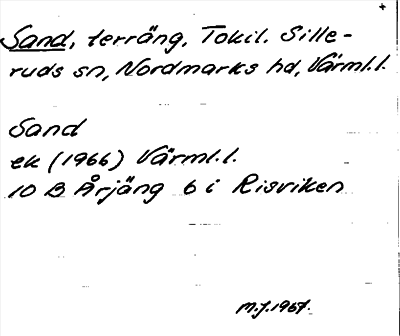 +
Sand, terräng, Tokil. Sille-
ruds sn, Nordmarks hd, Värml.l.
Sand
ek (1966) Värml.l.
10 B Årjäng 6 i Risviken
M.J. 1967.